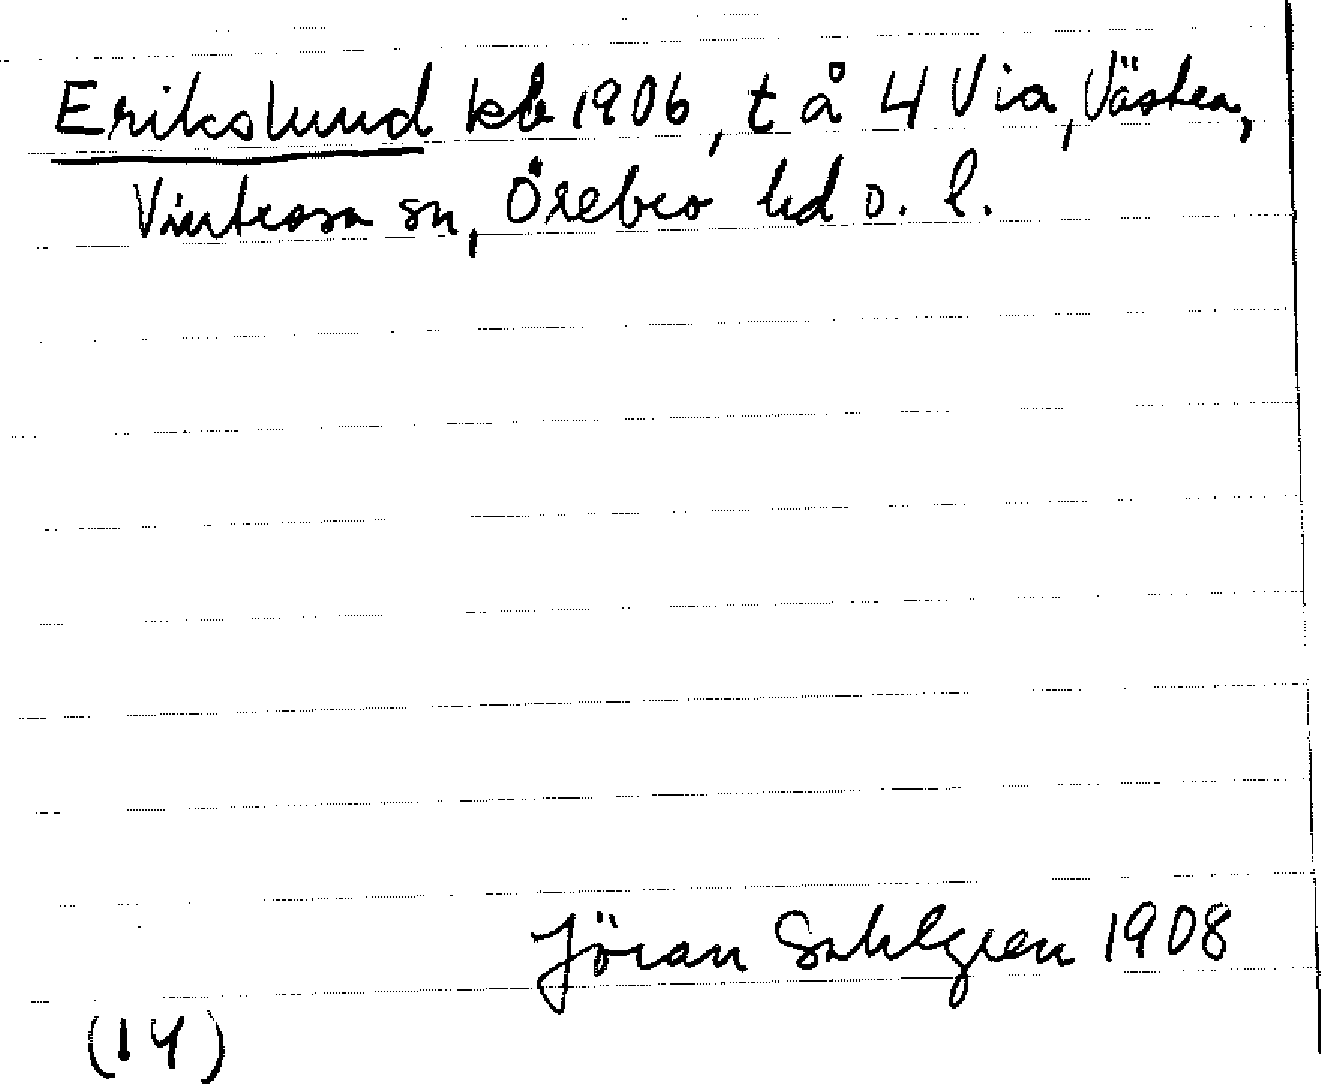 Erikslund kb 1906, t å 4 Via, Västra,
Vintrosa sn, Örebro hd o. l.
Jöran Sahlgren 1908
(14)